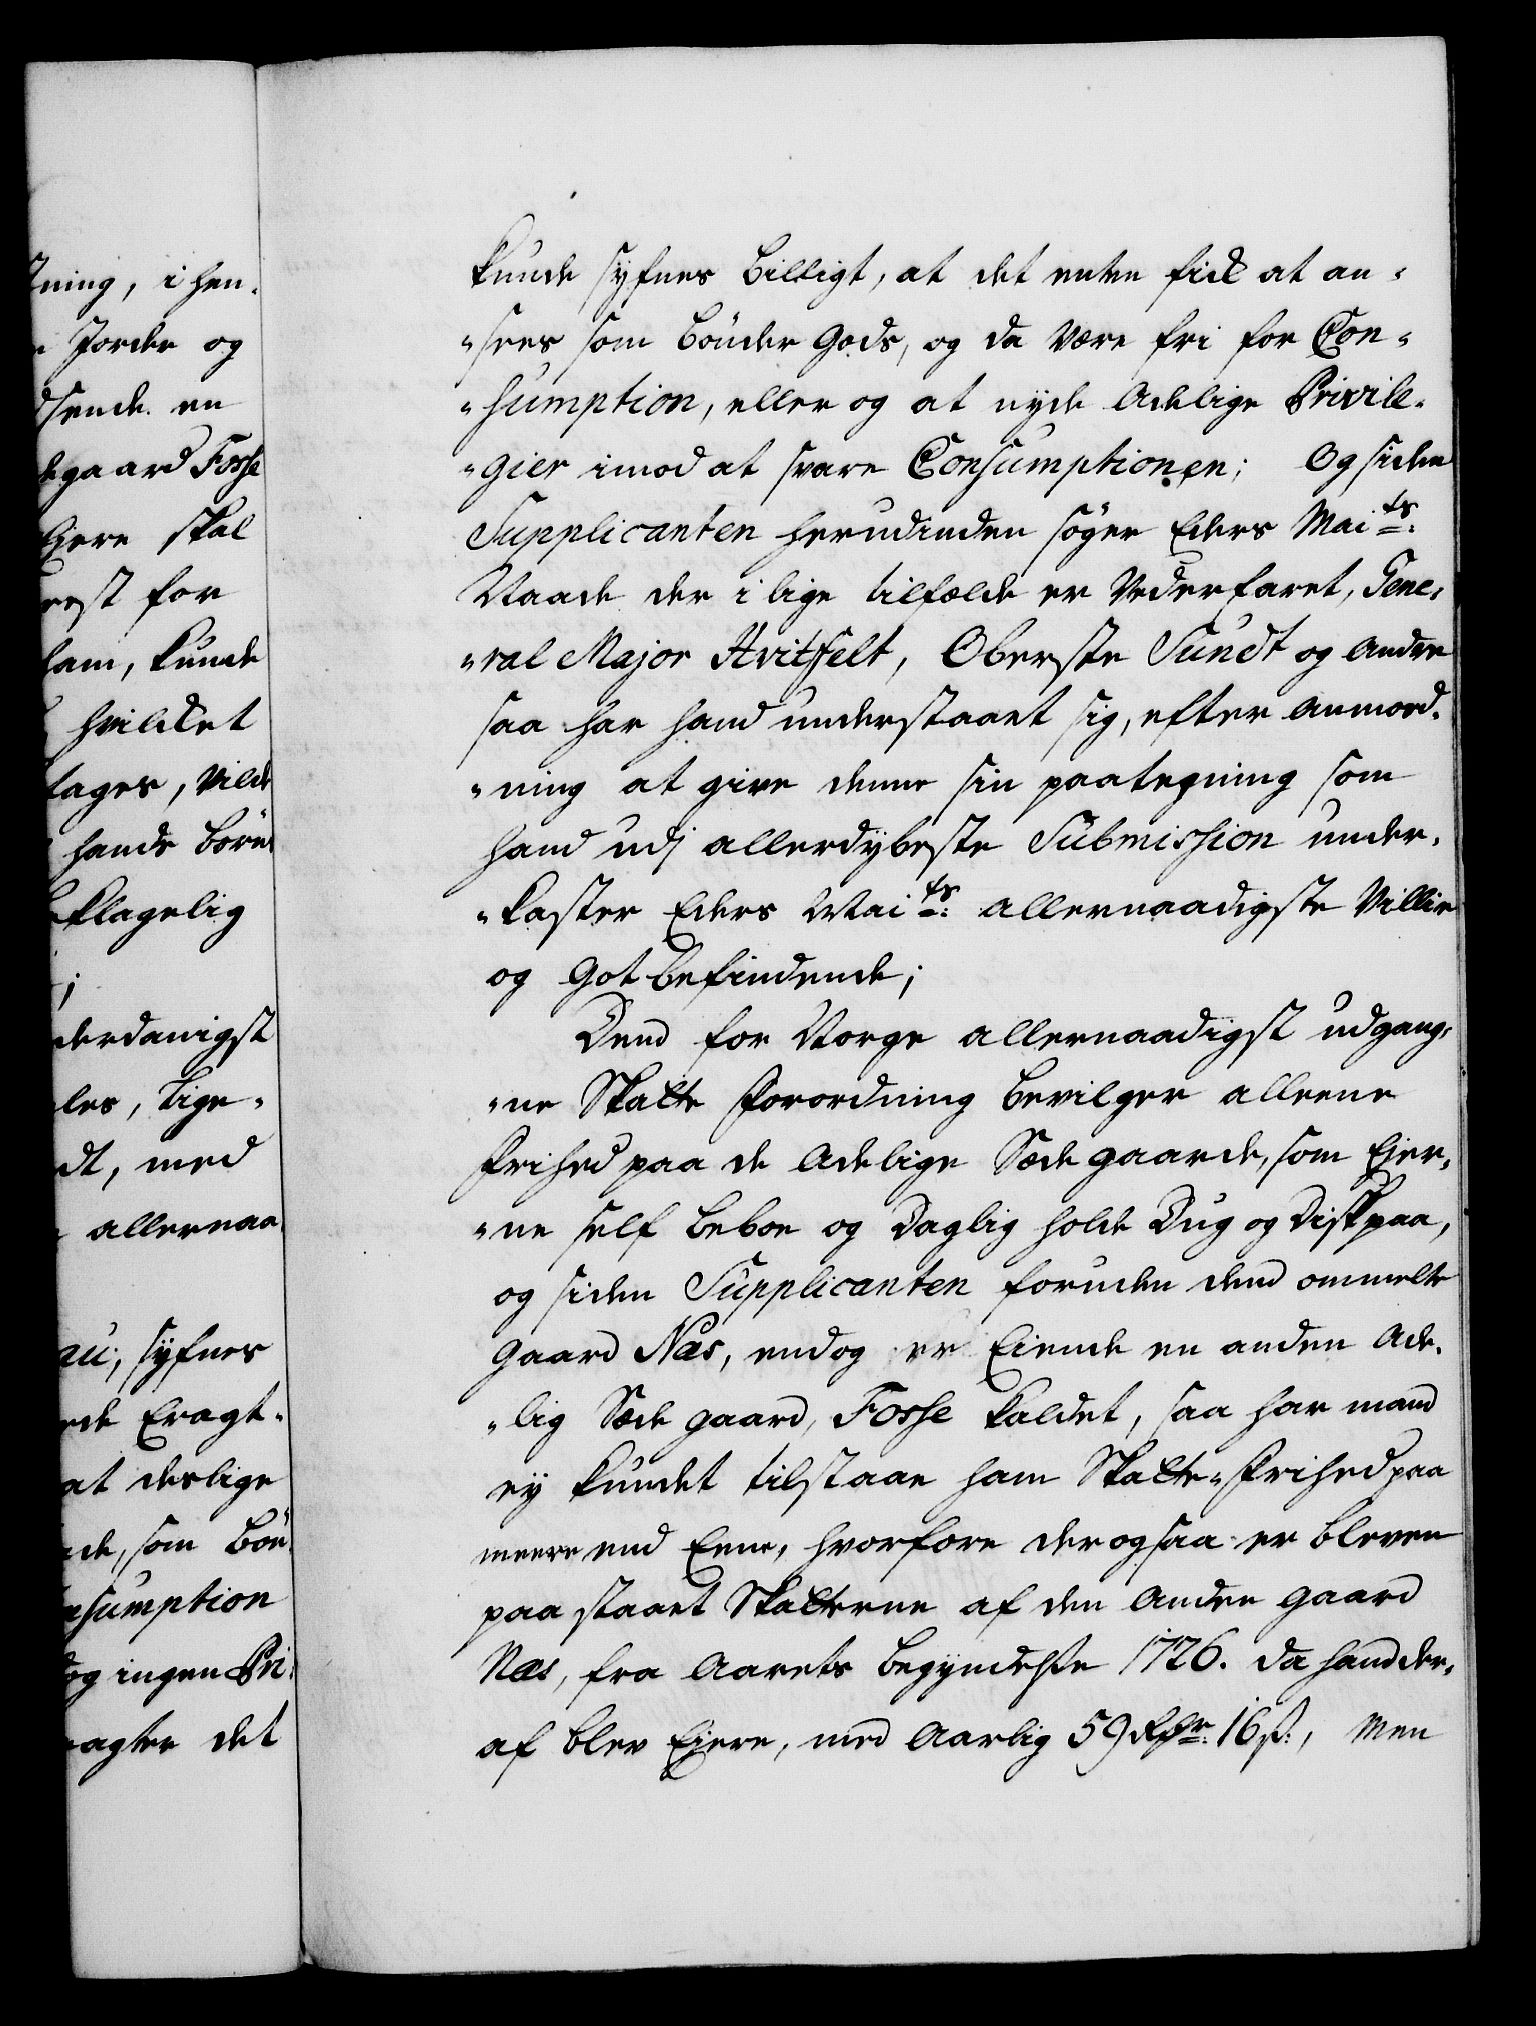 tning, i hen-
Jorder og
dsende en
degaard Fosse
Ejere skal
rest for
ham, kunde
hvilcket
tages, vilde
hands børn
beklagelig
;
derdanigst
les, lige-
dt, med
allernaa-
au; syfnes
ede Eragt-
at deslige
de, som Bøn-
nsumption
dog ingen Pri-
agter det
kunde syfnes billigt, at det enten fick at an-
-sees som bönder Gods, og da være fri for Con-
-sumption, eller og at nyde Adelige Privile-
-gier imod at svare Consumptionen; Og siden
Supplicanten herudinden söger Eders Mai.ts
Naade der i lige tilfælde er Vederfaret, Gene-
-ral Major Hvitfelt, Oberste Sundt og andre
saa har hand understaaet sig, efter Anmod-
-ning at give denne sin paategning som
hand udj allerdybeste Submission under-
-kaster Eders Mai.ts allernaadigste Villie
og Gotbefindende;
Dend for Norge allernaadigst udgang-
-ne Skatte Forordning bevilger alleene
Frihed paa de Adelige Sædegaarde, som Ejer-
-ne self beboe og Daglig holde Dug og Disk paa,
og siden Supplicanten foruden dend ommelte
Gaard Næs, endog er Eiende en anden Ade-
-lig Sædegaard, Fosse kaldet, saa har mand
ey kundet tilstaae ham Skatte-Frihed paa
meere end Eene, hvorfore der ogsaa er bleven
paastaaet Skatterne af den Anden Gaard
Næs, fra Aarets begyndelse 1726. da hand der-
af blev Ejere, med Aarlig 59 Rdr. 16 s:, Men